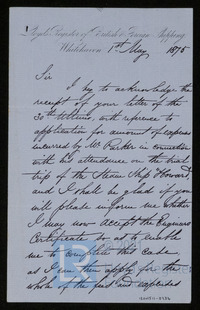 Lloyd's Register of British & Foreign Shipping
Whitehaven 1st May 1875
Sir
I beg to acknowledge the
receipt of your letter of the
30th Ultimo, with reference to
application for amount of expenses
incurred by Mr Parker in connection
with his attendance on the trial
trip of the Steam Ship "Howard",
and I shall be glad if you
will please inform me whether
I may now accept the Engineers
Certificate so as to enable
me to complete this case
as I can then apply for the
whole of the fees and expenses